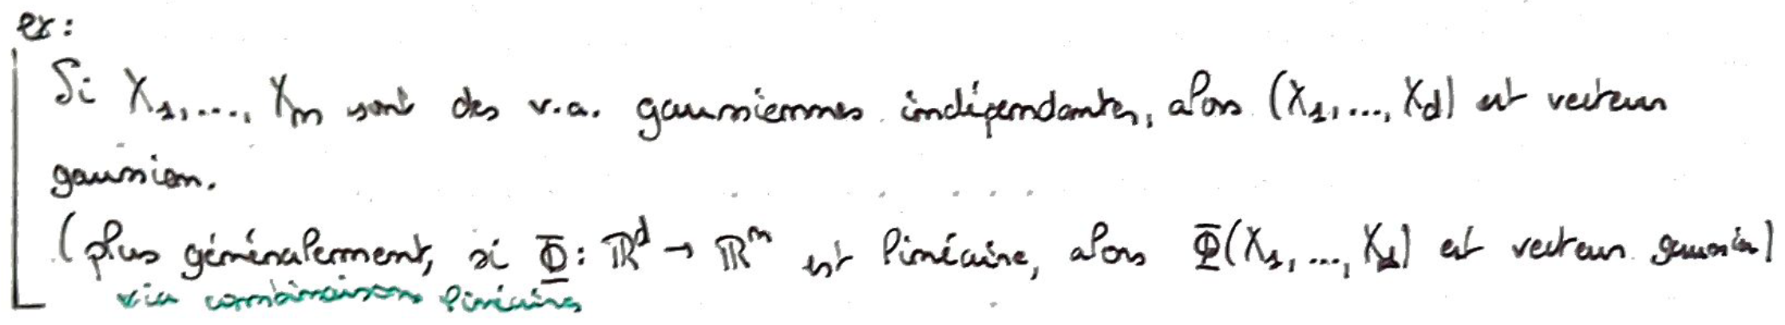 ex:
Si X₁, ..., Xₘ sont des v.a. gaussiennes indépendantes, alors (X₁, ..., X_d) est vecteur
gaussien.
(plus généralement, si Φ : ℝᵈ → ℝᵐ est linéaire, alors Φ(X₁, ..., X_d) est vecteur gaussien)
via combinaisons linéaires